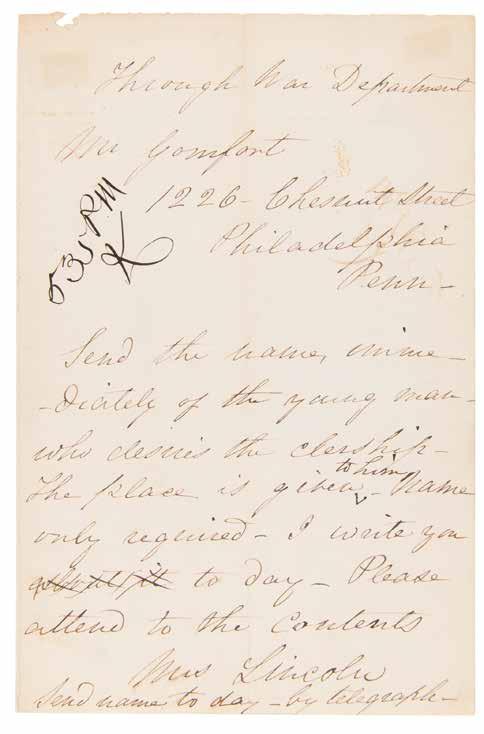 Through War Department
Mr Gomfort
1226 - Chesnut Street
Philadelphia
Penn -
5 35 P.M
Send the name, imme -
- diately of the young man -
who desires the clership -
to him
The place is given - Name
only required - I write you
about it to day - Please
attend to the contents
Mrs Lincoln
Send name to day - by telegraph -